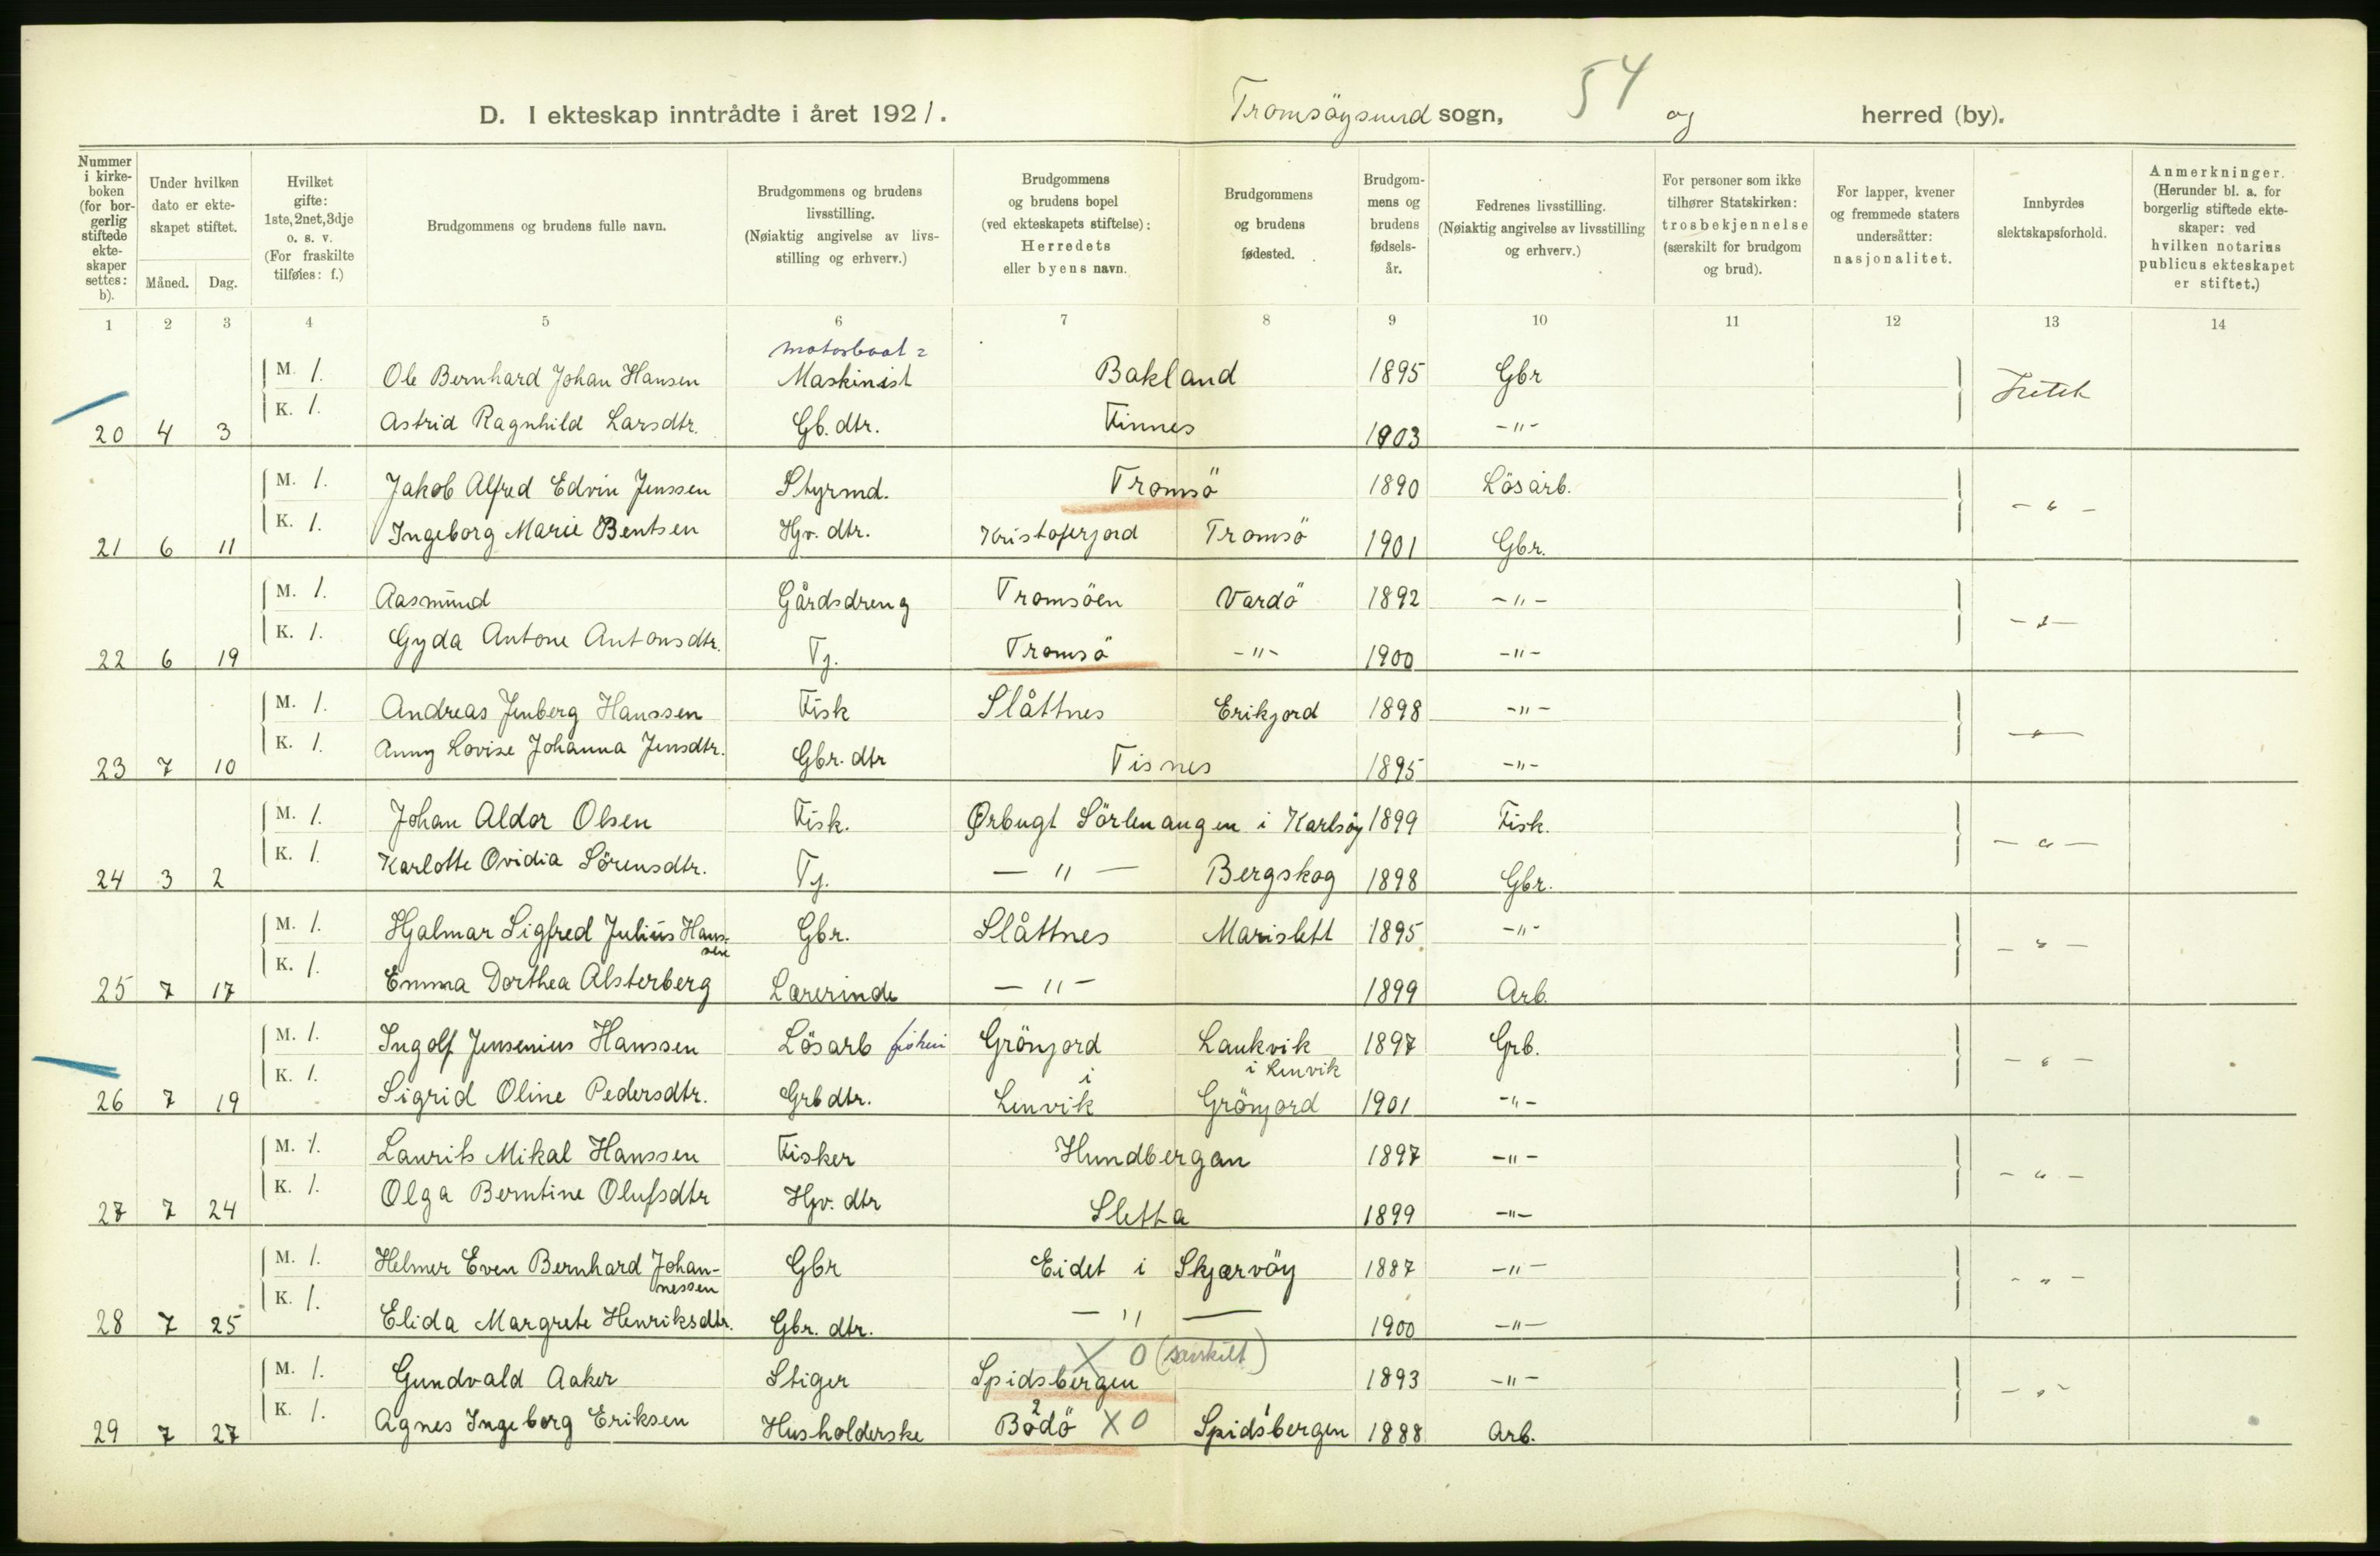 D. I ekteskap inntrådte i året 1921. Tromsöysund sogn, 54 og herred (by).
Nummer i kirkeboken (for borgerlig stiftede ekteskaper settes: b).
Under hvilken dato er ekteskapet stiftet. Måned. Dag.
Hvilket gifte: 1ste, 2net, 3dje o. s. v. (For fraskilte tilføies: f.)
Brudgommens og brudens fulle navn.
Brudgommens og brudens livsstilling. (Nøiaktig angivelse av livsstilling og erhverv.)
Brudgommens og brudens bopel (ved ekteskapets stiftelse): Herredets eller byens navn.
Brudgommens og brudens fødested.
Brudgommens og brudens fødselsår.
Fedrenes livsstilling. (Nøiaktig angivelse av livsstilling og erhverv.)
For personer som ikke tilhører Statskirken: trosbekjennelse (særskilt for brudgom og brud).
For lapper, kvener og fremmede staters undersåtter: nasjonalitet.
Innbyrdes slektskapsforhold.
Anmerkninger. (Herunder bl. a. for borgerlig stiftede ekteskaper: ved hvilken notarius publicus ekteskapet er stiftet.)
1 2 3 4 5 6 7 8 9 10 11 12 13 14
motorbaat =
M. 1. Ole Bernhard Johan Hansen Maskinist Bakland 1895 Gbr
20 4 3 K. 1. Astrid Ragnhild Larsdtr. Gb. dtr. Finnes 1903 -"-
M. 1. Jakob Alfred Edvin Jenssen Styrmd. Tromsö 1890 Lösarb. -"-
21 6 11 K. 1. Ingeborg Marie Bentsen Hjv. dtr. Kristoferjord Tromsö 1901 Gbr.
M. 1. Aasmund Gårdsdreng Tromsöen Vardö 1892 -"- -"-
22 6 19 K. 1. Gyda Antone Antonsdtr. Tj. Tromsö -"- 1900 -"-
M. 1. Andreas Jenberg Hanssen Fisk Slåttnes Erikjord 1898 -"- -"-
23 7 10 K. 1. Anny Lovise Johanna Jensdtr. Gbr. dtr Tisnes 1895 -"-
M. 1. Johan Aldor Olsen Fisk. Ørbugt Sörlenangen i Karlsöy 1899 Fisk. -"-
24 3 2 K. 1. Karlotte Ovidia Sörensdtr. Tj. -"- Bergskog 1898 Gbr.
M. 1. Hjalmar Sigfred Julius Hanssen Gbr. Slåttnes Marislett 1895 -"- -"-
25 7 17 K. 1. Emma Dorthea Alsterberg Lærerinde -"- 1899 Arb.
M. 1. Ingolf Jensenius Hanssen Lösarb Grönjord Laukvik i Lenvik 1897 Grb. -"-
26 7 19 K. 1. Sigrid Oline Pedersdtr. Grb dtr. i Lenvik Grönjord 1901 -"-
M. 1. Laurits Mikal Hanssen Fisker Hundbergan 1897 -"- -"-
27 7 24 K. 1. Olga Berntine Olufsdtr Hjv. dtr Sletta 1899 -"-
M. 1. Helmer Even Bernhard Johannessen Gbr Eidet i Skjærvöy 1887 -"- -"-
28 7 25 K. 1. Elida Margrete Henriksdtr. Gbr. dtr. -"- 1900 -"-
X O (særskilt)
M. 1. Gundvald Aaker Stiger Spidsbergen 1893 -"- -"-
29 7 27 K. 1. Agnes Ingeborg Eriksen Husholderske Bodö 2 X O Spidsbergen 1 1888 Arb.